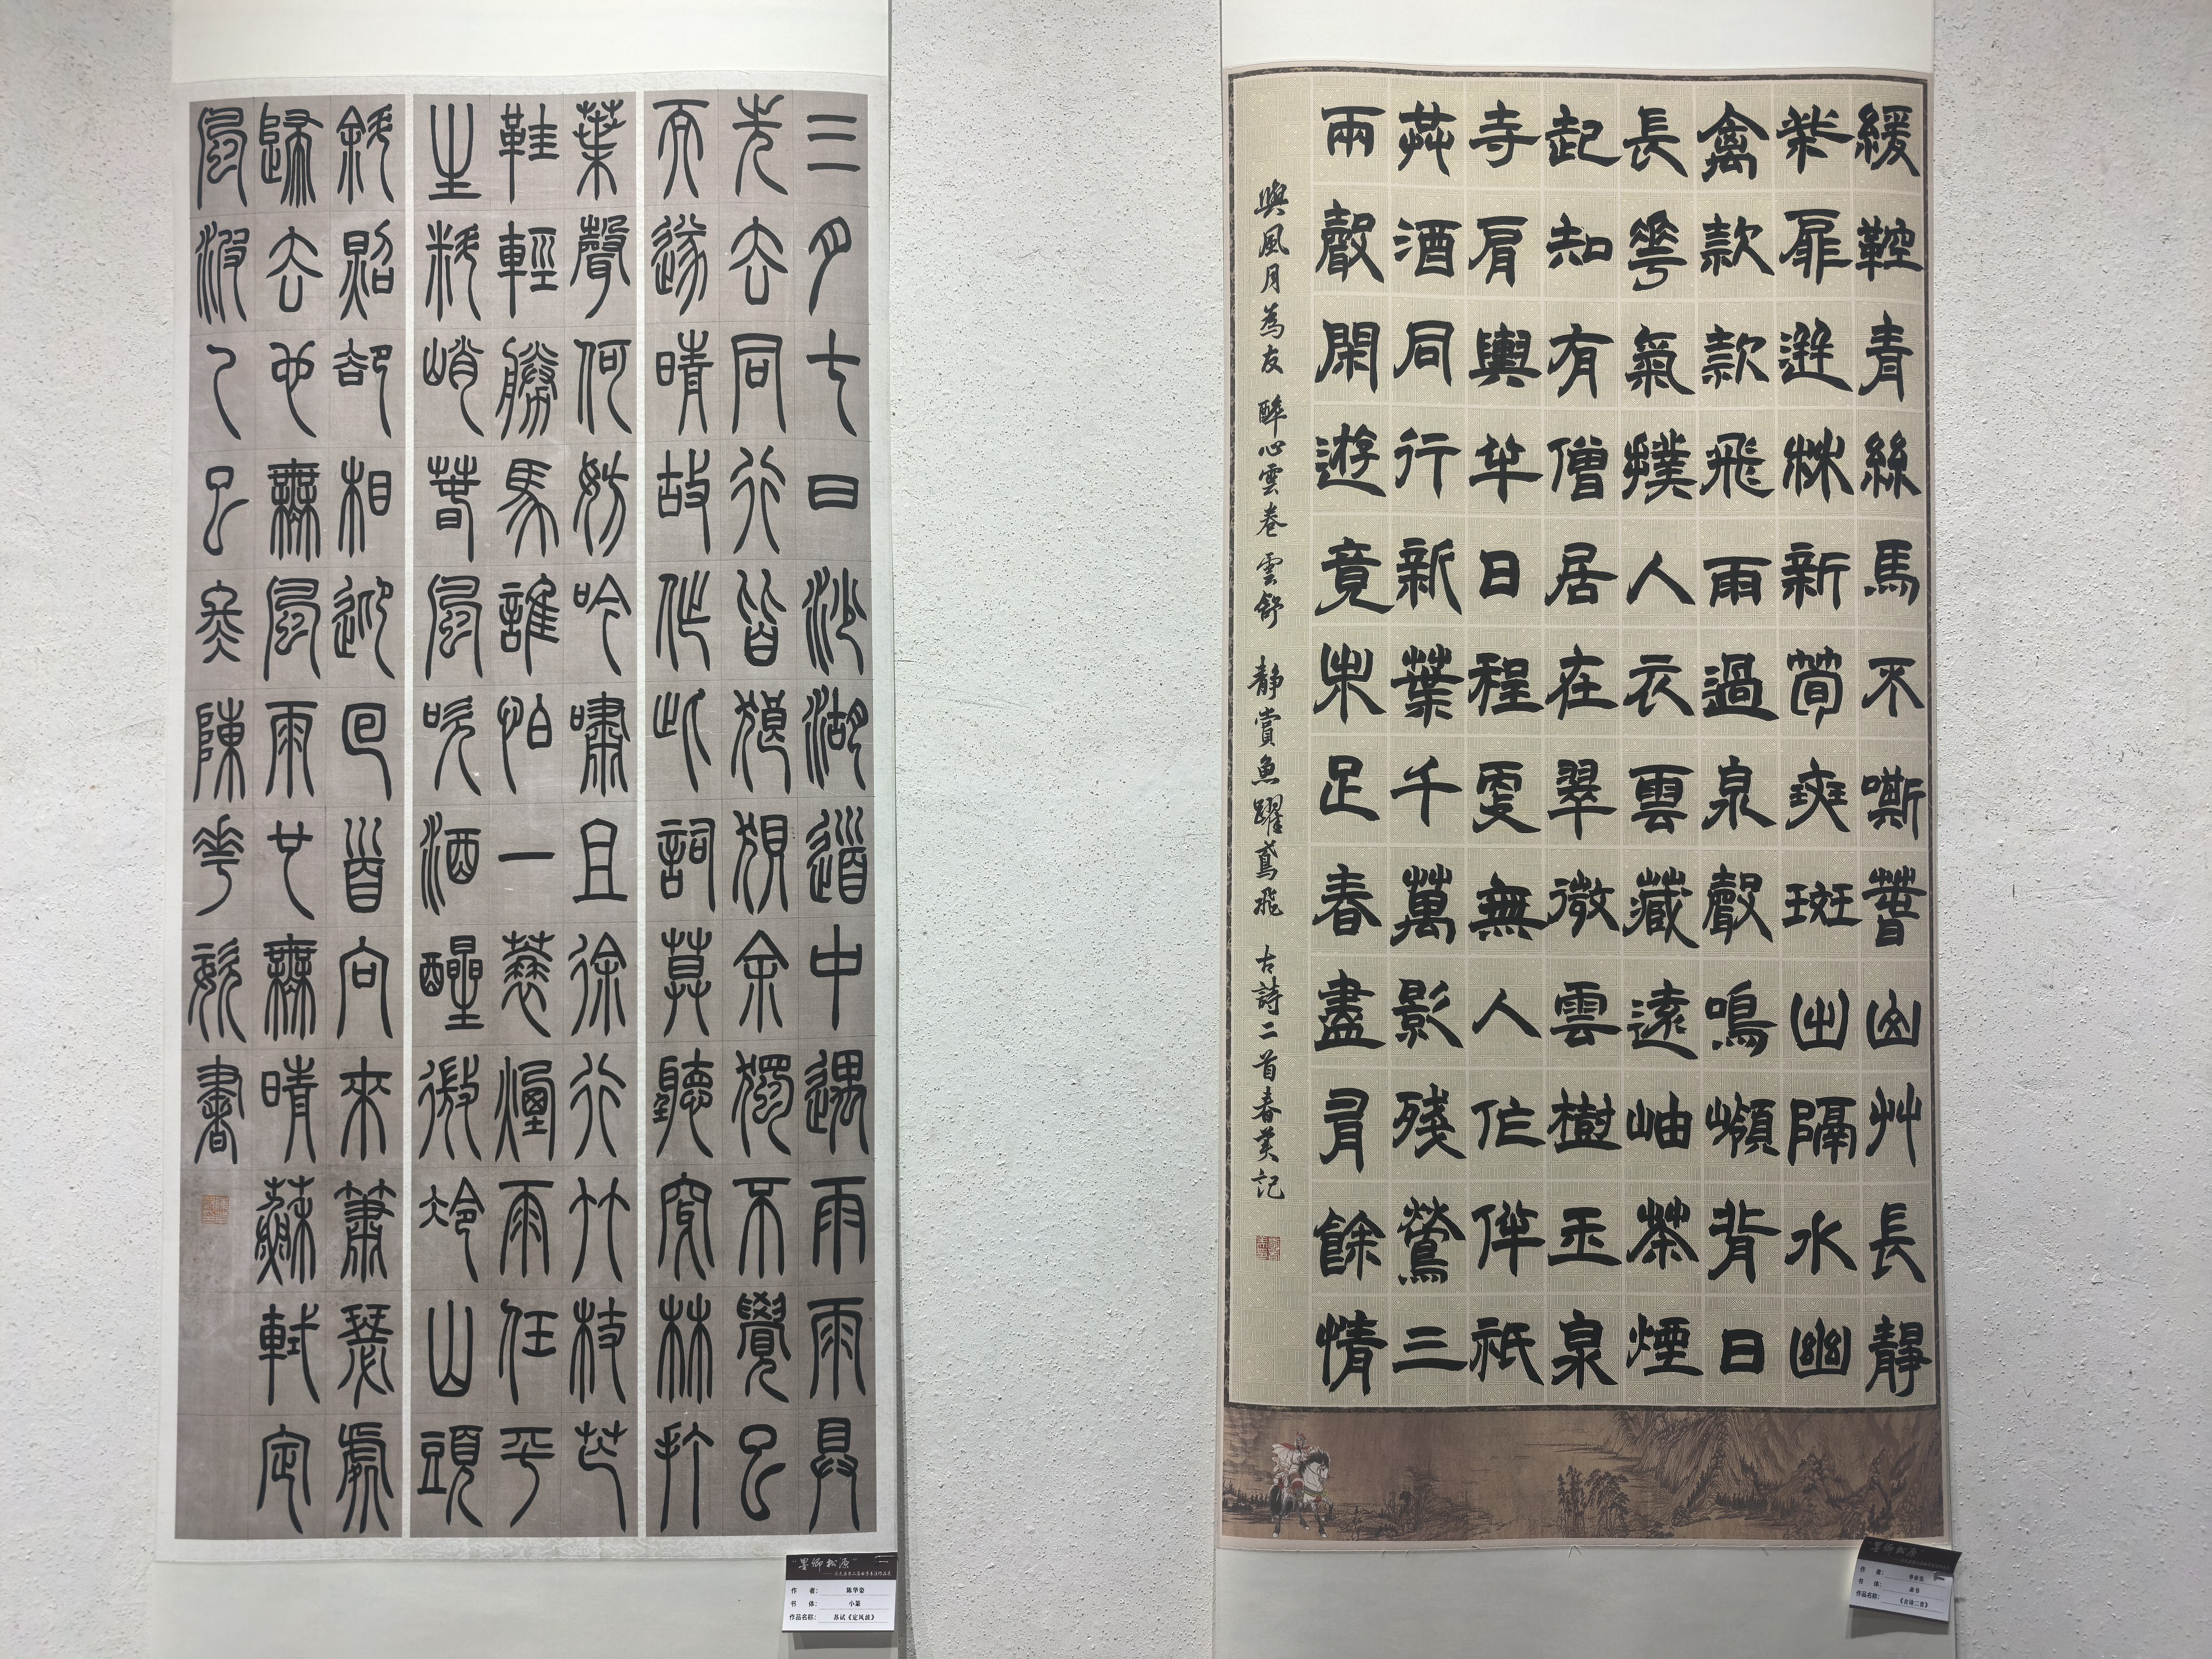 三月七日沙湖道中遇雨雨具
先去同行皆狼狽余獨不覺已
而遂晴故作此詞莫聽穿林打
葉聲何妨吟嘯且徐行竹杖芒
鞋輕勝馬誰怕一蓑煙雨任平
生料峭春風吹酒醒微冷山頭
斜照卻相迎回首向來蕭瑟處
歸去也無風雨也無晴蘇軾定
風波乙巳冬陳華姿書
作 者： 陈华姿
书 体： 小篆
作品名称： 苏轼《定风波》
緩鞚青絲馬不嘶春山艸長靜
柴扉迸林新筍斑斑出隔水幽
禽款款飛雨過泉聲鳴嶺背日
長華氣撲人衣雲藏遠岫茶煙
起知有僧居在翠微雲樹玉泉
寺肩輿半日程更無人作伴祇
共酒同行新葉千萬影殘鶯三
兩聲閑遊竟未足春盡有餘情
與風月為友 醉心雲卷雲舒 靜賞魚躍鳶飛 古詩二首春英記
作 者：
书 体：
作品名称： 《古诗二首》